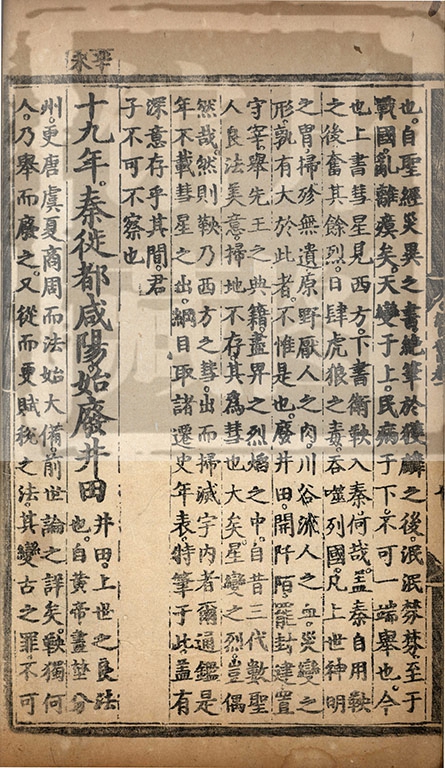 也自聖經災異之書絶筆於獲麟之後泯泯棼棼至于
戰國亂離瘼矣天變于上民病于下不可一端舉也今
也上書彗星見西方下書衛鞅入秦何哉盖秦自用鞅
之後奮其餘烈日肆虎狼之毒吞噬列國凡上世神明
之冑掃殄無遺原野厭人之肉川谷流人之血災變之
形孰有大於此者不惟是也廢井田開阡陌罷封建置
守宰舉先王之典籍盡畀之烈熖之中自昔三代數聖
人良法羙意掃地不存其爲彗也大矣星變之烈豈偶
然哉然則鞅乃西方之彗出而掃滅宇内者爾通鑑是
年不載彗星之出綱目取諸遷史年表特筆于此盖有
深意存乎其間君
子不可不察也
十九年秦徙都咸陽始廢井田
井田上世之良法
也自黄帝畫埜分
州更唐虞夏商周而法始大備前世論之詳矣鞅獨何
人乃舉而廢之又從而更賦稅之法其變古之罪不可